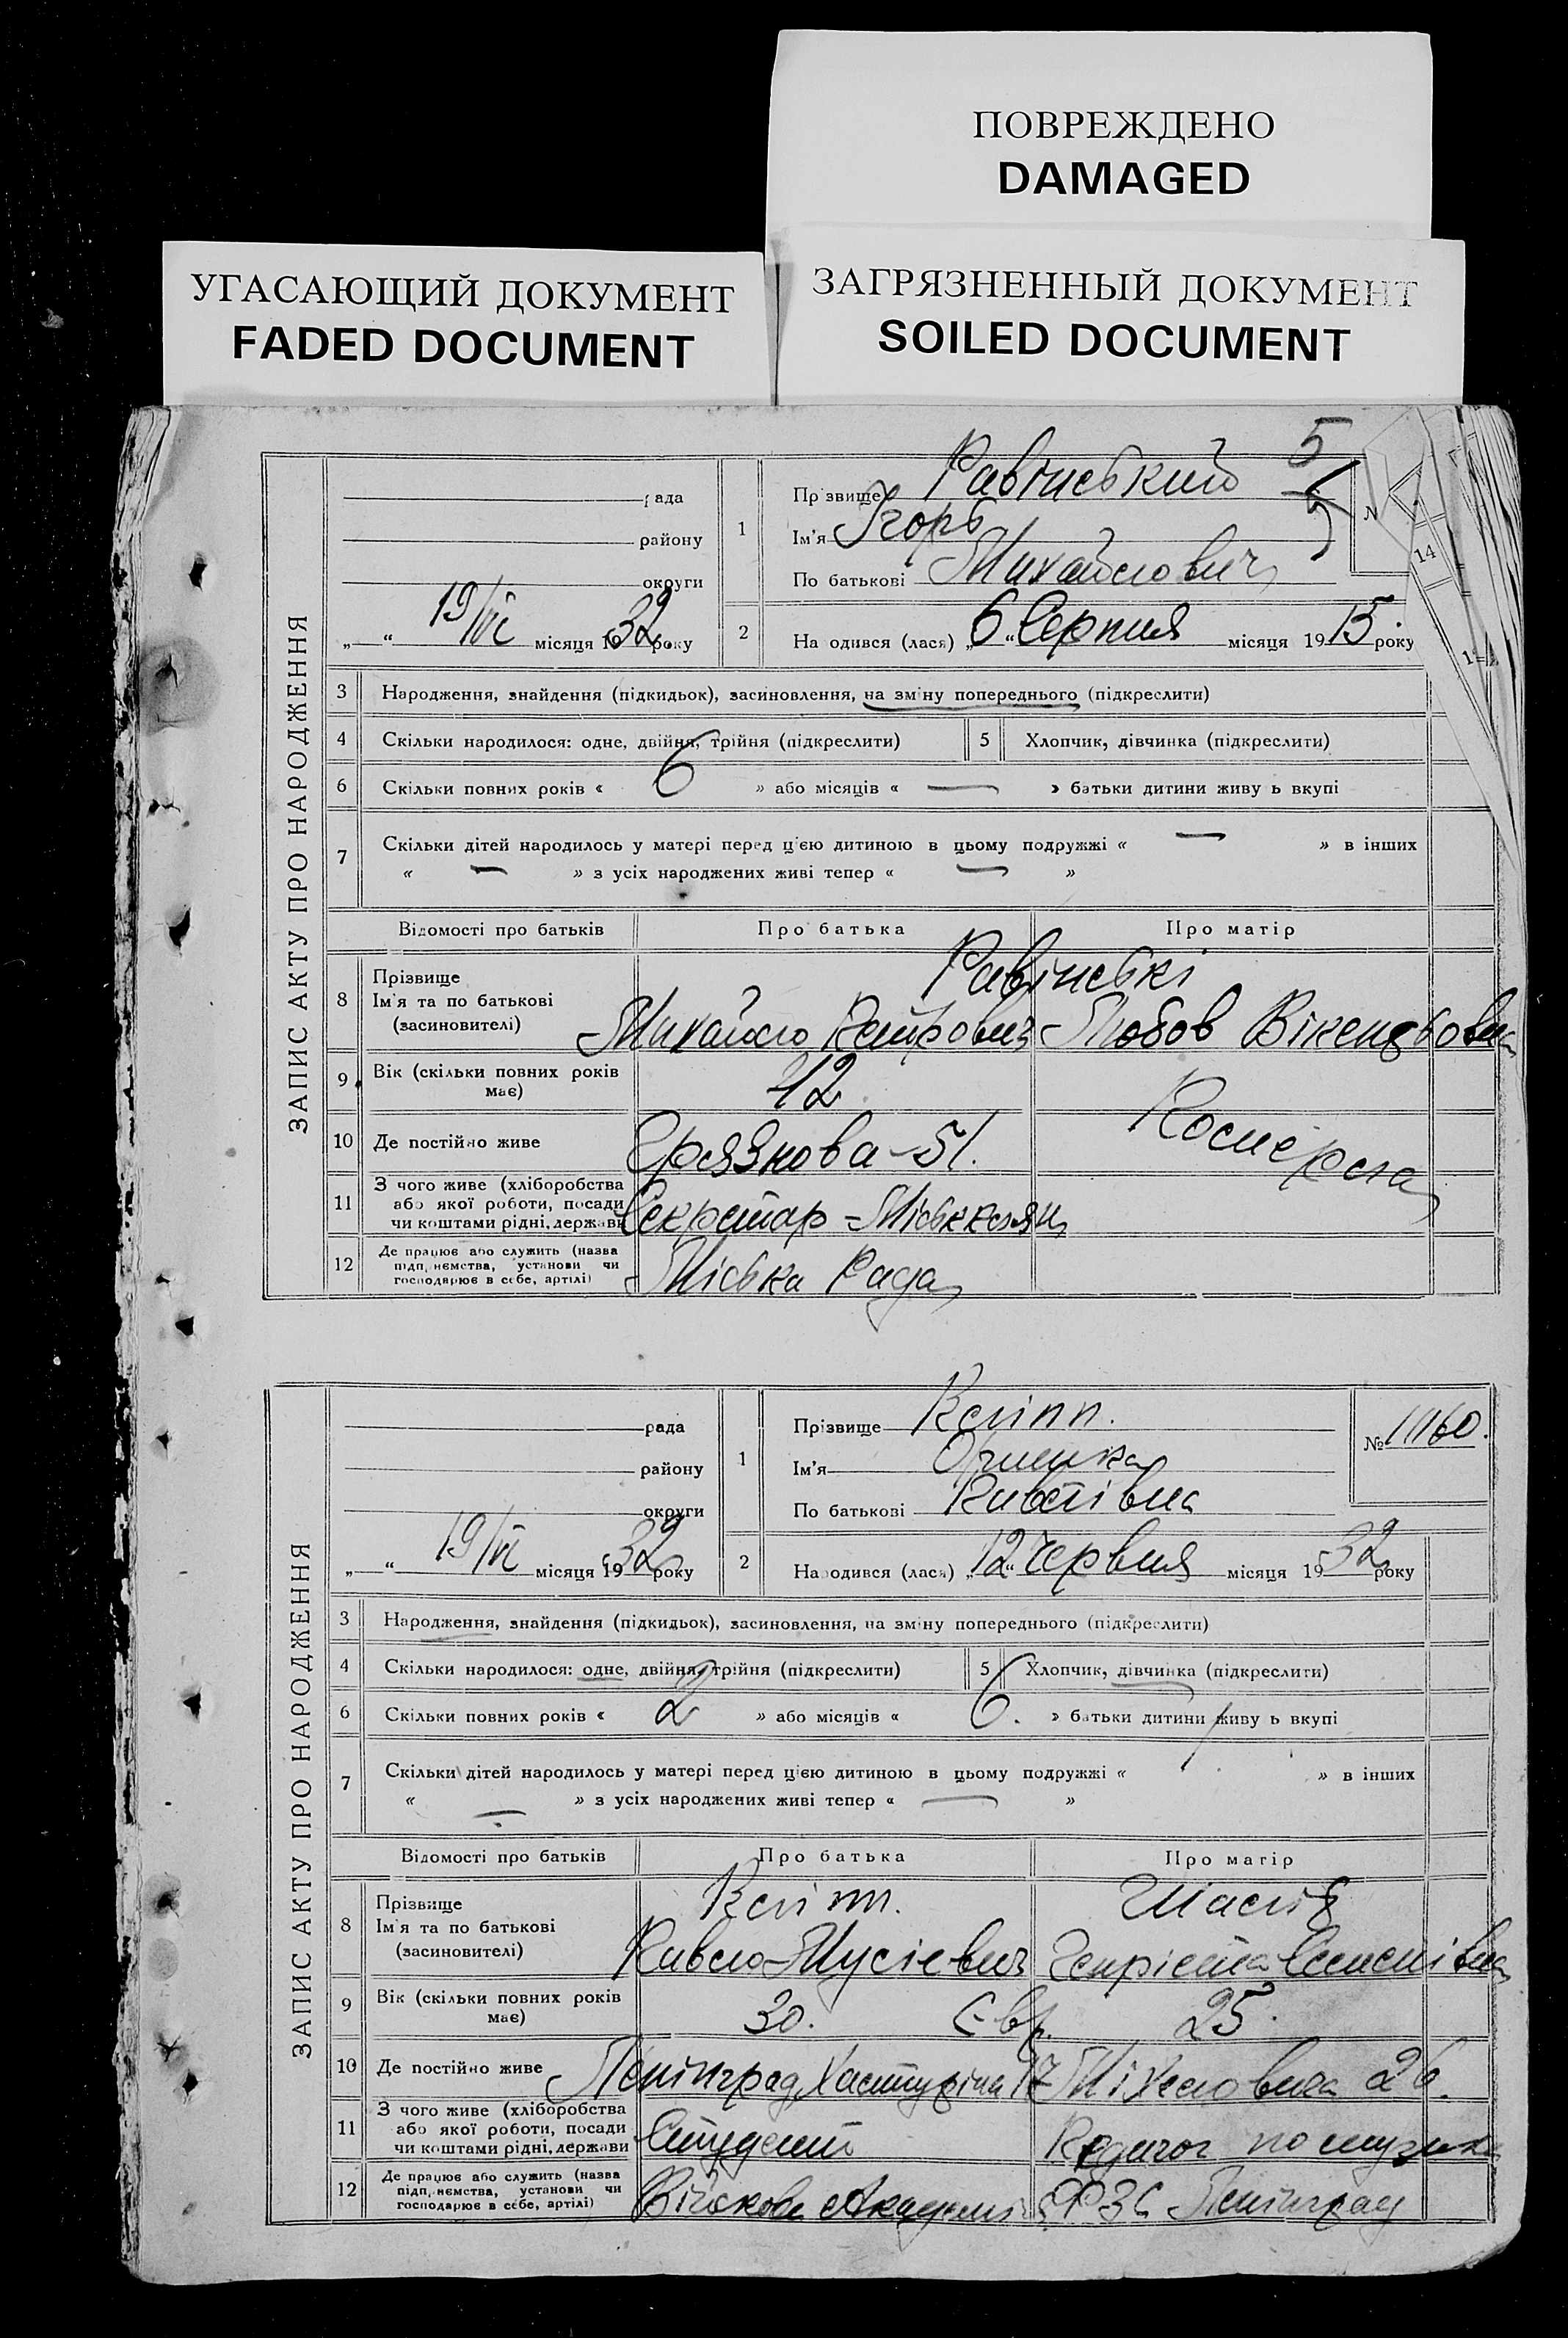 ПОВРЕЖДЕНО
DAMAGED
УГАСАЮЩИЙ ДОКУМЕНТ
FADED DOCUMENT
ЗАГРЯЗНЕННЫЙ ДОКУМЕНТ
SOILED DOCUMENT
ЗАПИС АКТУ ПРО НАРОДЖЕННЯ
рада
району
округи
„ “ 19/VI місяця 1932 року
1
Прізвище Равінський
Ім'я Ігорь
По батькові Михайлович
5
14
2 Народився (лася) „6“ Серпня місяця 1915 року
3 Народження, знайдення (підкидьок), засиновлення, на зміну попереднього (підкреслити)
4 Скільки народилося: одне, двійня, трійня (підкреслити) 5 Хлопчик, дівчинка (підкреслити)
6 Скільки повних років « 6 » або місяців « — » батьки дитини живуть вкупі
7 Скільки дітей народилось у матері перед цією дитиною в цьому подружжі « — » в інших
« — » з усіх народжених живі тепер « — »
Відомості про батьків Про батька Про матір
8 Прізвище Равінські
Ім'я та по батькові
(засиновителі) Михайло Петрович Любов Вікендьовна
9 Вік (скільки повних років
має) 42 Померла
10 Де постійно живе 51.
11 З чого живе (хліборобства
або якої роботи, посади
чи коштами рідні, держави Секретар
12 Де працює або служить (назва
підприємства, установи чи
господарює в себе, артілі) Міська Рада
ЗАПИС АКТУ ПРО НАРОДЖЕННЯ
рада
району
округи
„ “ 19/VI місяця 1932 року
1
Прізвище Кліпп.
Ім'я
По батькові Павлівна
№ 11160.
2 Народився (лася) „12“ Червня місяця 1932 року
3 Народження, знайдення (підкидьок), засиновлення, на зміну попереднього (підкреслити)
4 Скільки народилося: одне, двійня, трійня (підкреслити) 5 Хлопчик, дівчинка (підкреслити)
6 Скільки повних років « 2 » або місяців « 6. » батьки дитини живуть вкупі
7 Скільки дітей народилось у матері перед цією дитиною в цьому подружжі « » в інших
« — » з усіх народжених живі тепер « — »
Відомості про батьків Про батька Про матір
8 Прізвище Кліпп.
Ім'я та по батькові
(засиновителі) Павло Мусієвич Генрієта
9 Вік (скільки повних років
має) 30. Євр. 25.
10 Де постійно живе Ленінград 17 26.
11 З чого живе (хліборобства
або якої роботи, посади
чи коштами рідні, держави Студент Педагог по музиці
12 Де працює або служить (назва
підприємства, установи чи
господарює в себе, артілі) Військова Академія Ленінград